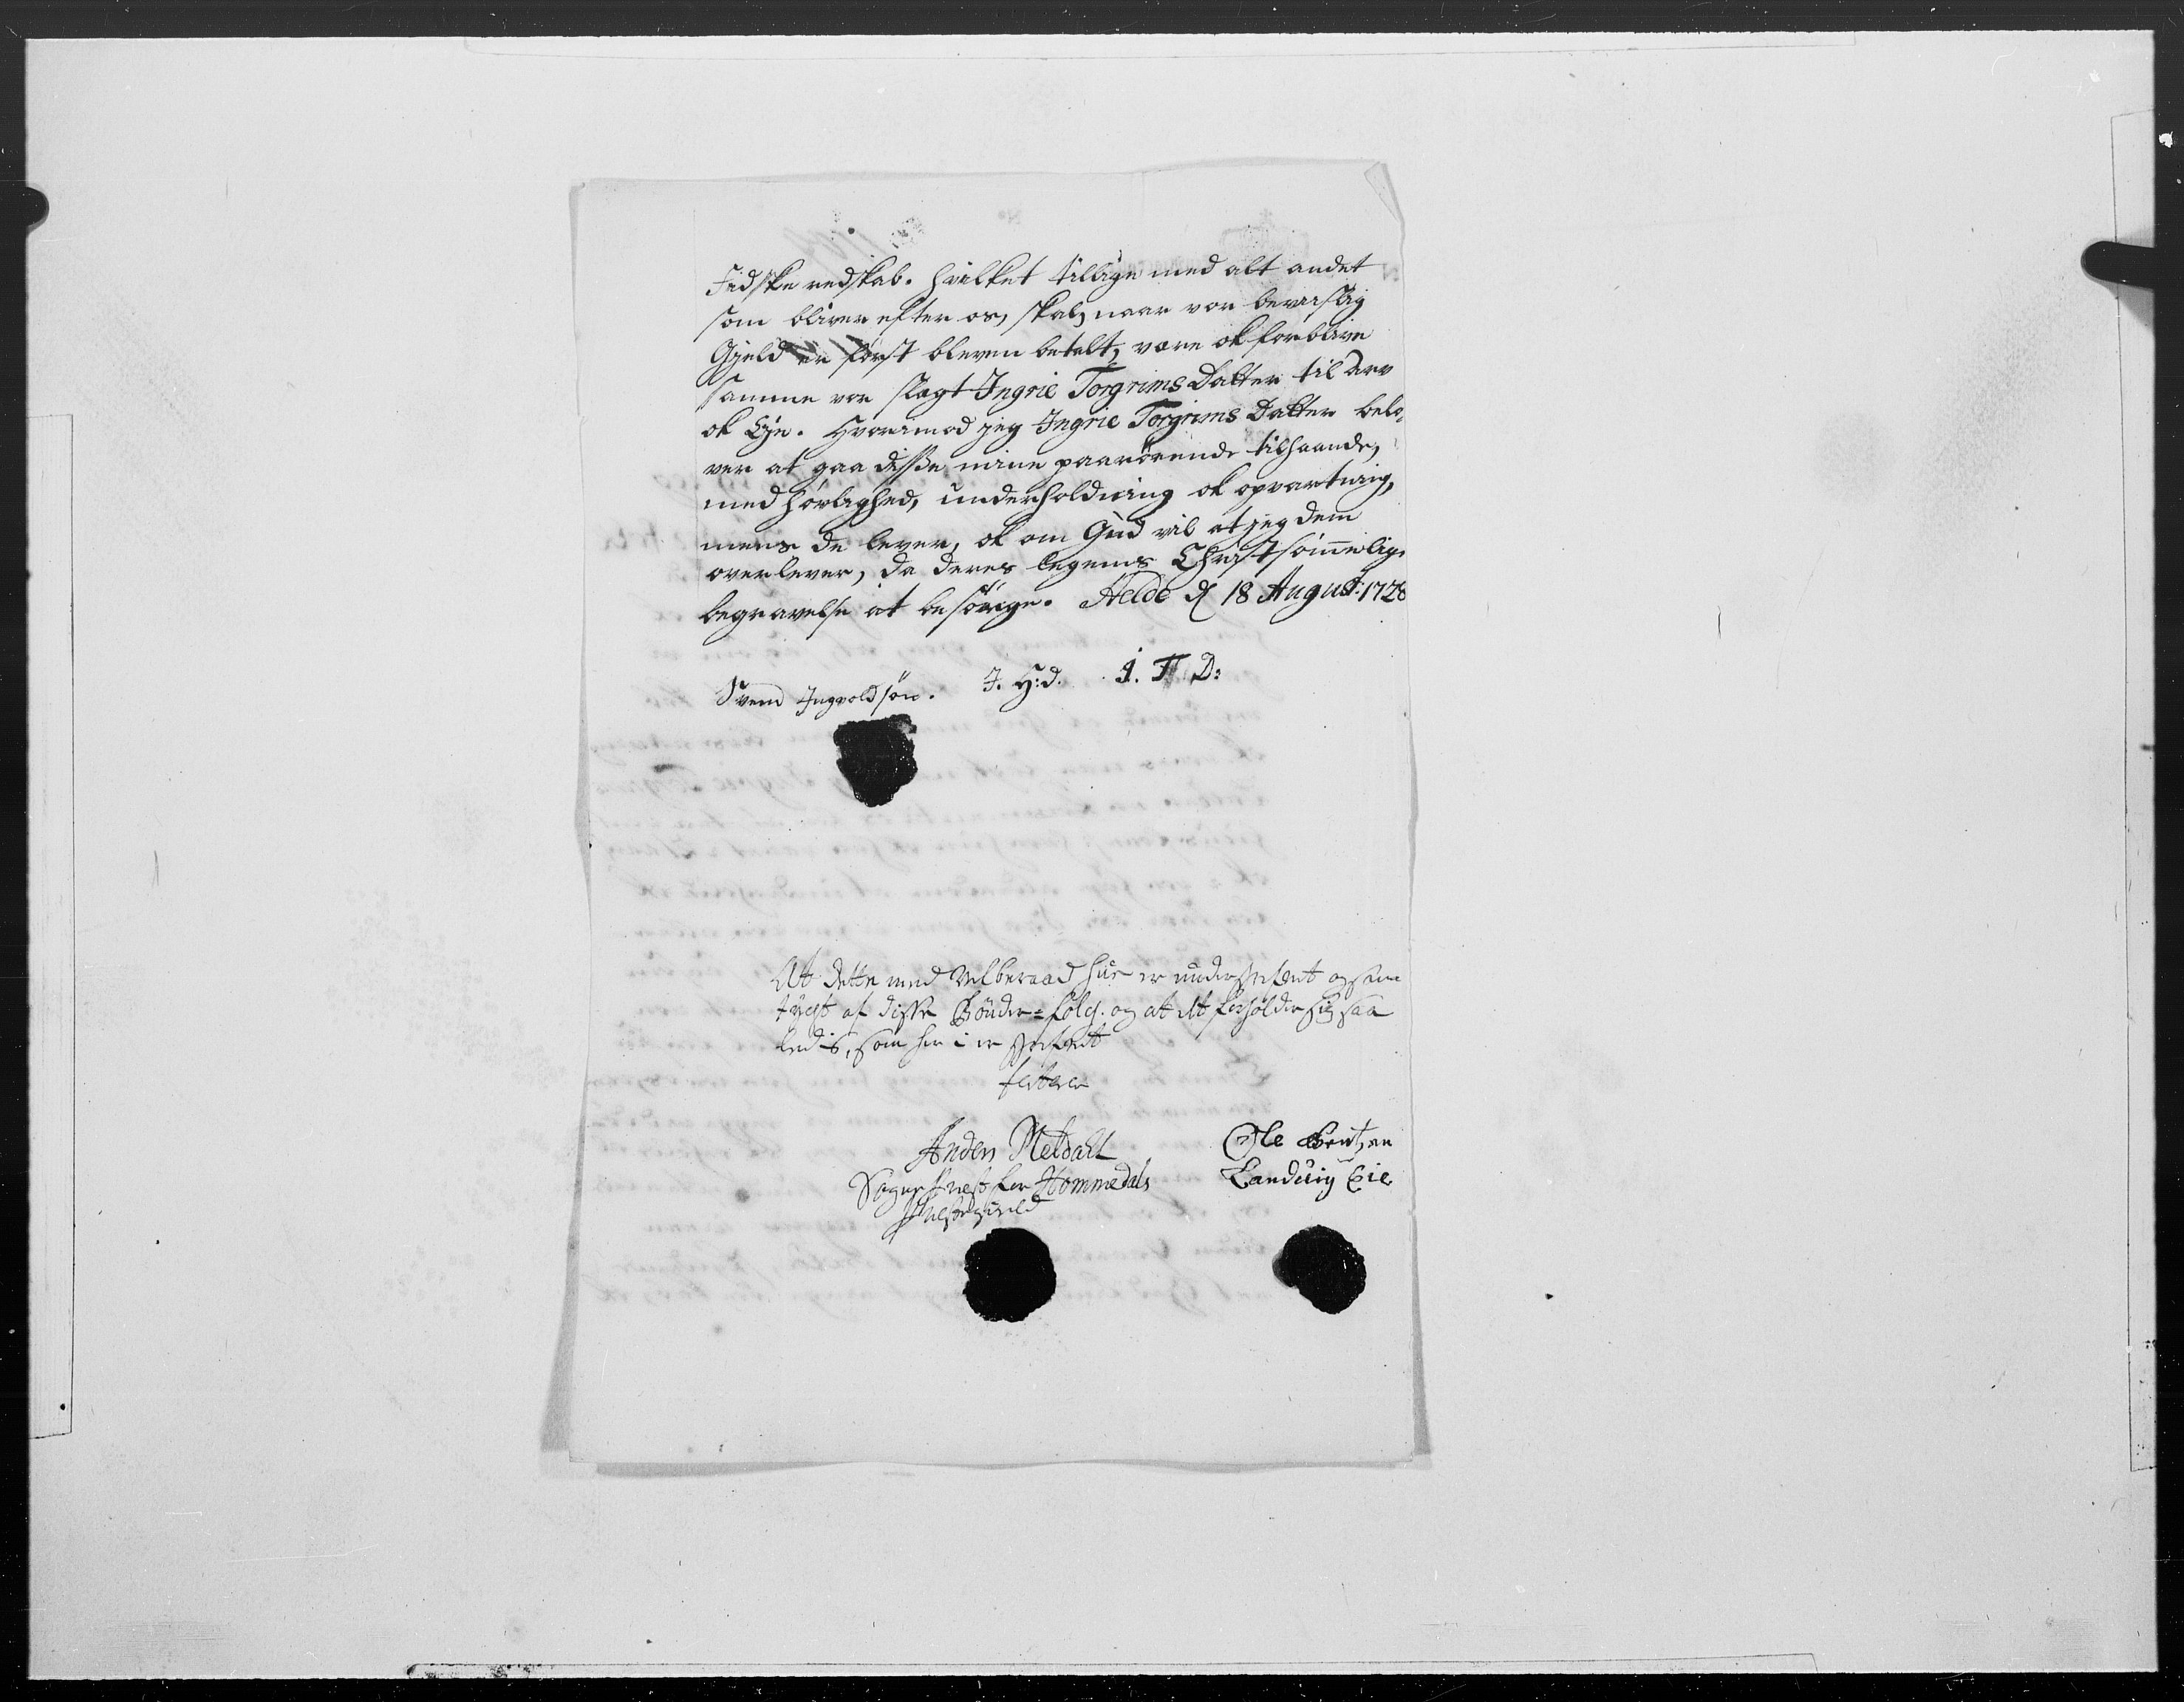 Fidske redskab. hvilket tillige med alt andet
som bliver efter os, skal, naar vor bevislig
Gjeld er først bleven betalt, være ok forblive
samme vor slegt Ingrie Torgrims Datter til Arv
ok Eje. Hvorimod jeg Ingrie Torgrims Datter belo¬
ver at gaa disse mine paarørende tilhaande,
med hørlighed, underholdning ok opvartning,
mens de lever, ok om Gud vil at jeg dem
overlever, da deres legems Christsømmelig
begravelse at besørge. Aelde d 18 August: 1728
Svend Ingvoldsøn. I. H:d. I. T D:
At dette med Velberaad hue er underskrefvet og sam
tygt af disse Bønder-folch. og at det forholder sig saa
ledis, som her i er skrefvet
testerer
Anders Meldahl
Ole Bentzen
Sogne Prest for Hommedals
Landuig Eie
Prestegield